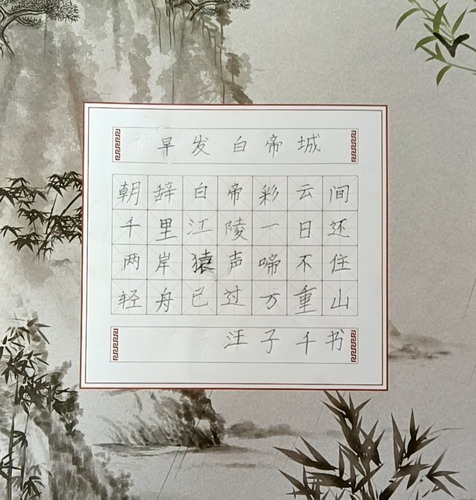 早发白帝城
朝辞白帝彩云间
千里江陵一日还
两岸猿声啼不住
轻舟已过万重山
汪子千书